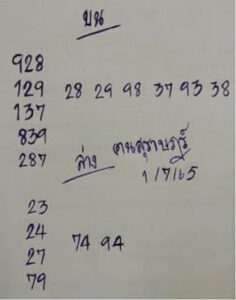 บน
928
129 28 29 98 37 93 38
137
839
287 ล่าง คนสุราษฎร์
1/7/65
23
24
27 74 94
79